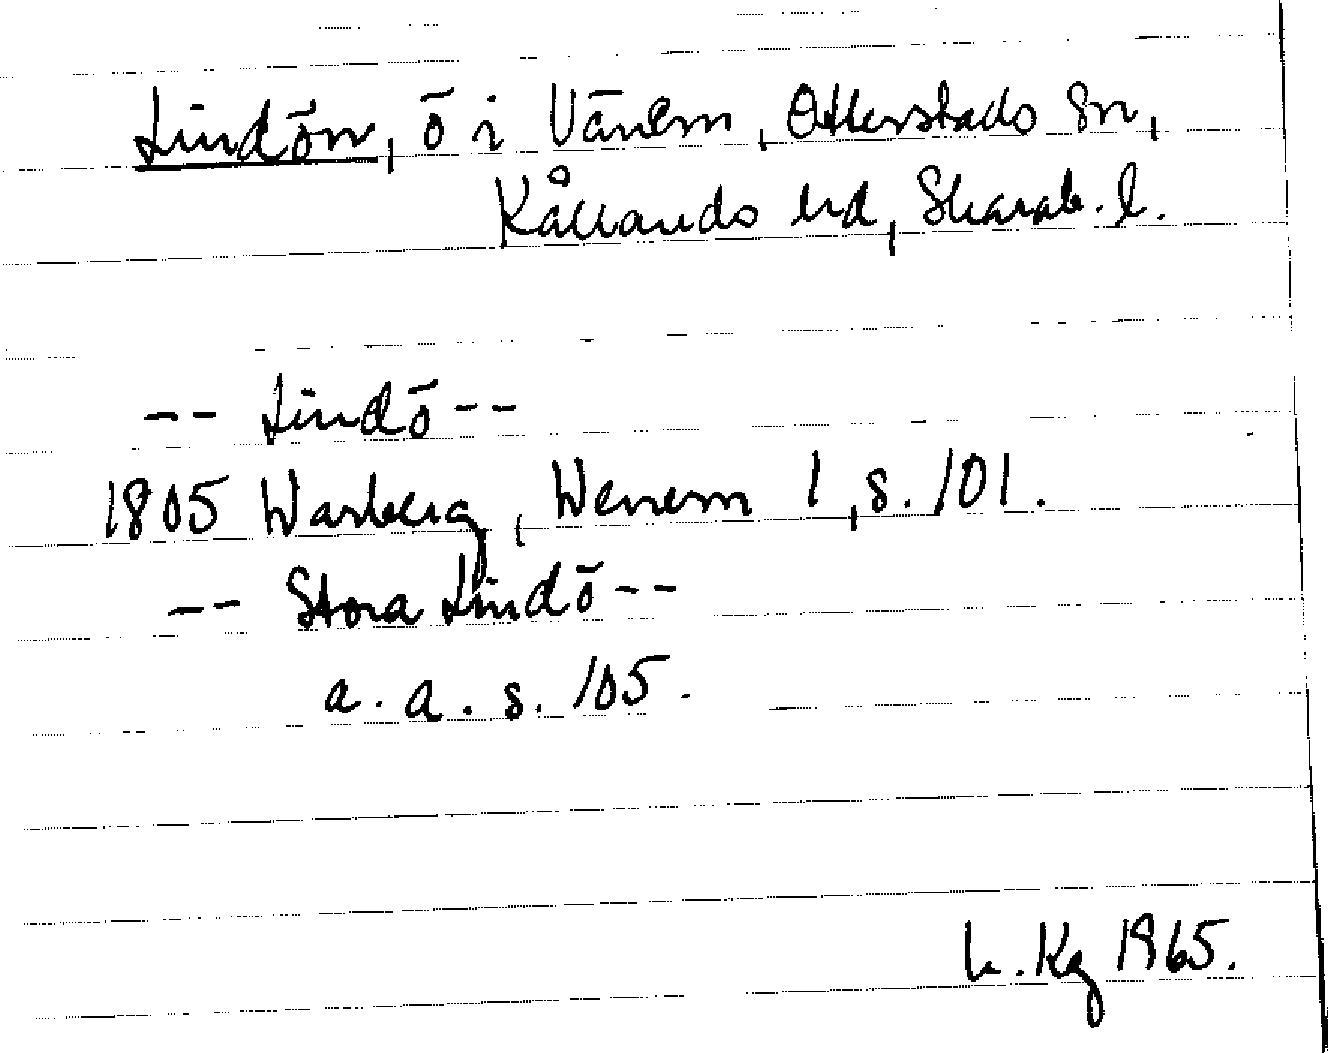 Lindön, ö i Vänern, Otterstads sn,
Kållands hd, Skarab. l.
-- Lindö --
1805 Warberg, Wenern 1, s. 101.
-- Stora Lindö --
a. a. s. 105.
Kg 1965.